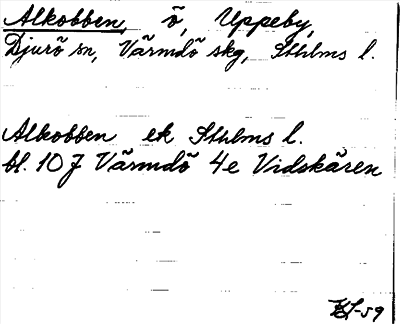 Alkobben, ö, Uppeby,
Djurö sn, Värmdö skg, Sthlms l.
Alkobben ek Sthlms l.
bl. 107 Värmdö 4e Vidskären